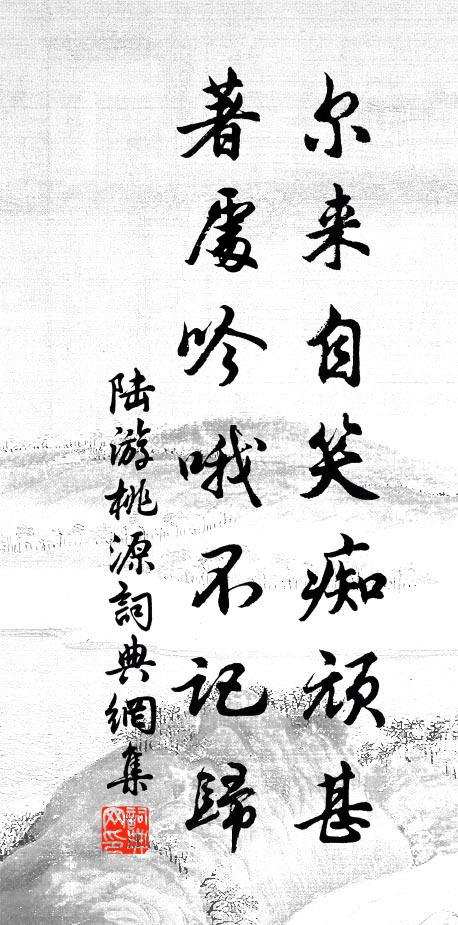 尔来自笑痴顽甚
著處吟哦不记歸
陆游桃源詞典網集